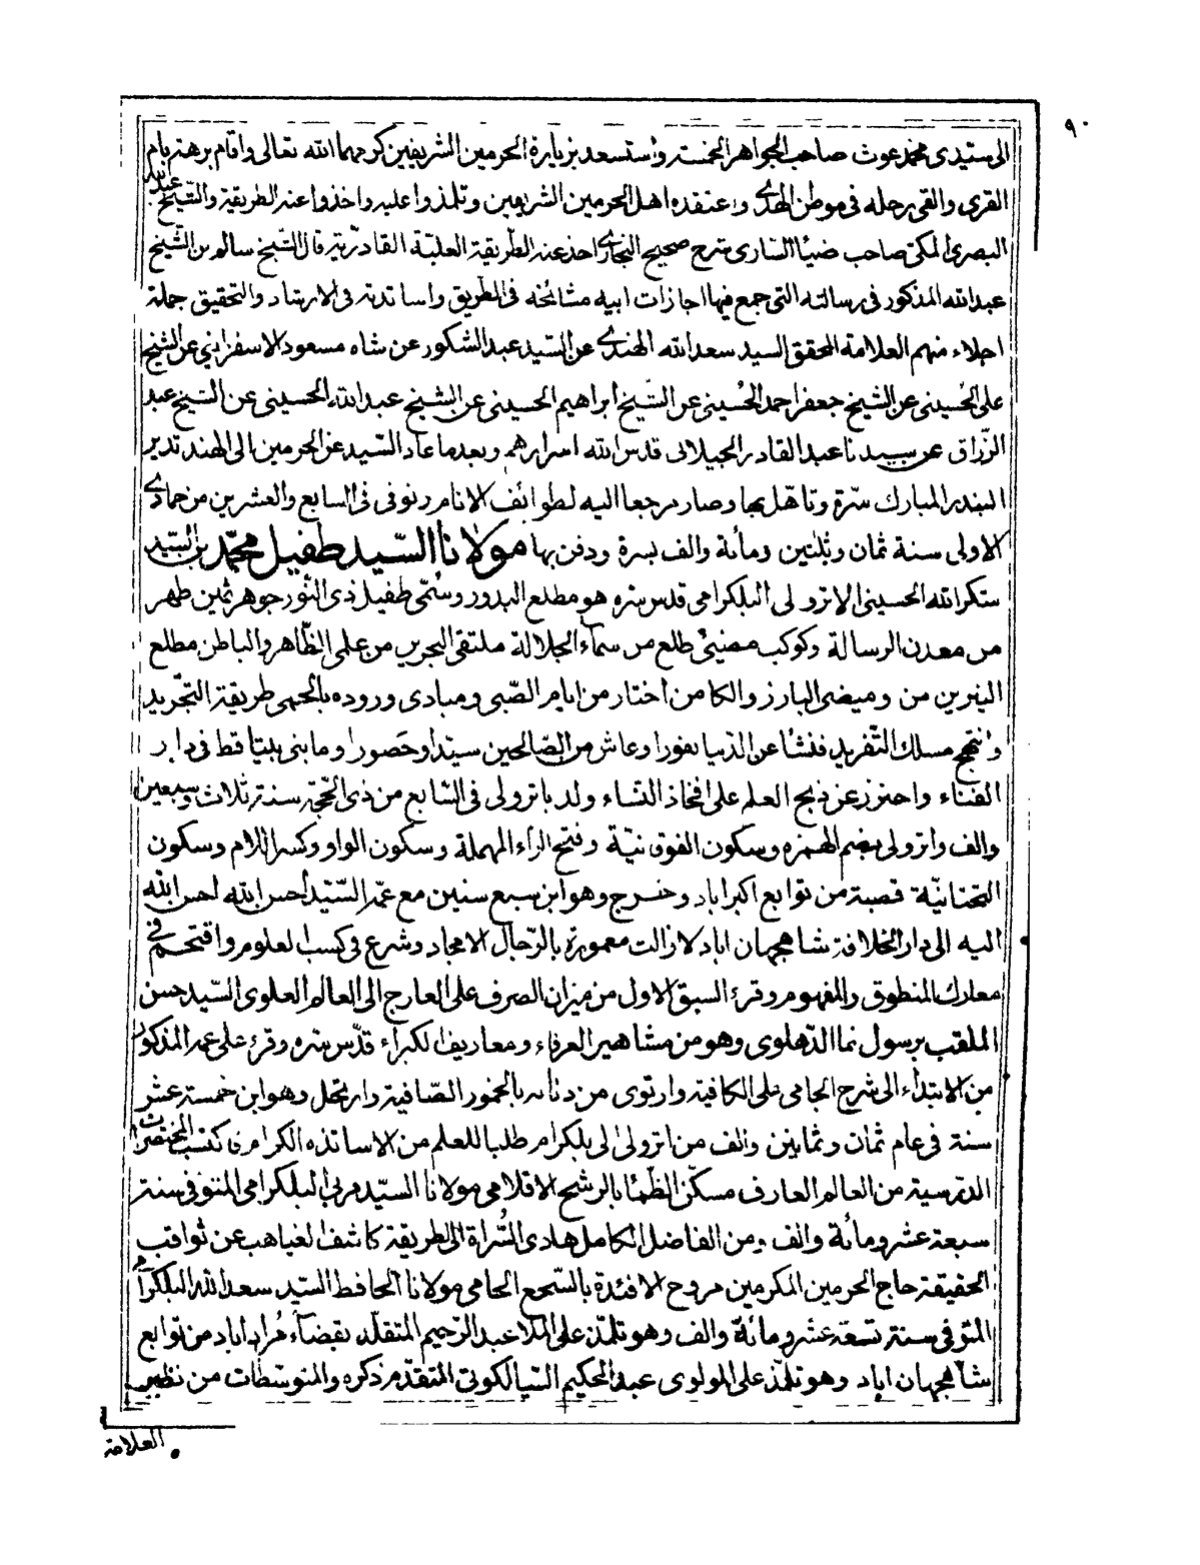 ٩٠
الى سيدى محمد غوث صاحب الجواهر الخمسة واستسعد بزيارة الحرمين الشريفين كرمهما الله تعالى واقام برهة بام
القرى والقى رحله فى موطن الهدى واعتقده اهل الحرمين الشريفين وتلمذوا عليه واخذوا عنه الطريقة والشيخ عبد الله
البصرى المكى صاحب ضياء السارى شرح صحيح البخارى اخذ عنه الطريقة العلية القادرية قال الشيخ سالم بن الشيخ
عبد الله المذكور فى رسالته التى جمع فيها اجازات ابيه مشائخه فى الطريق واساتذته فى الارشاد والتحقيق جملة
اجلاء منهم العلامة المحقق السيد سعد الله الهندى عن السيد عبد الشكور عن شاه مسعود الاسفرايني عن الشيخ
على الحسينى عن الشيخ جعفر احمد الحسينى عن الشيخ ابراهيم الحسينى عن الشيخ عبد الله الحسينى عن الشيخ عبد
الرزاق عن سيدنا عبد القادر الجيلانى قدس الله اسرارهم وبعد ما عاد السيد عن الحرمين الى الهند تدير
البندر المبارك سرة وتاهل بها وصار مرجعا اليه لطوائف الانام وتوفى فى السابع والعشرين من جمادى
الاولى سنة ثمان وثلثين ومائة والف بسرة ودفن بها مولانا السيد طفيل محمد بن السيد
شكر الله الحسينى الاترولى البلكرامى قدس سره هو مطلع البدور وسمى طفيل ذى النور جوهر ثمين ظهر
من معدن الرسالة وكوكب مضيئ طلع من سماء الجلالة ملتقى البحرين من علمى الظاهر والباطن مطلع
النيرين من وميضى البارز والكامن اختار من ايام الصبى ومبادى وروده بالحمى طريقة التجريد
وانتهج مسلك التفريد فنشا عن الدنيا نفورا وعاش من الصالحين سيدا وحصورا وما بنى بيتا قط فى دار
الفناء واحترز عن ذبح العلم على افخاذ النساء ولد باترولى فى السابع من ذى الحجة سنة ثلاث وسبعين
والف واترولى بضم الهمزة وسكون الفوقانية وفتح الراء المهملة وسكون الواو وكسر اللام وسكون
التحتانية قصبة من توابع اكبراباد وخرج وهو ابن سبع سنين مع عمه السيد احسن الله احسن الله
اليه الى دار الخلافة شاهجهان اباد لازالت معمورة بالرجال الامجاد وشرع فى كسب العلوم واقتحم فى
معارك المنطوق والمفهوم وقرء السبق الاول من ميزان الصرف على العارج الى العالم العلوى السيد حسن
الملقب برسول نما الدهلوى وهو من مشاهير العرفاء ومعاريف الكبراء قدس سره وقرء على عمه المذكور
من الابتداء الى شرح الجامى على الكافية وارتوى من دنانه بالخمور الصافية وارتحل وهو ابن خمسة عشر
سنة فى عام ثمان وثمانين والف من اترولى الى بلكرام طلبا للعلم من الاساتذه الكرام فاكتسب المختصرات
الدرسية من العالم العارف مسكن الظما بالرشح الاقلامى مولانا السيد مربى البلكرامى المتوفى سنة
سبعة عشر ومائة والف ومن الفاضل الكامل هادى السراة الى الطريقة كاشف الغياهب عن ثواقب
الحقيقة حاج الحرمين المكرمين مروح الافئدة بالسجع الحامى مولانا الحافظ السيد سعد الله البلكرامى
المتوفى سنة تسعة عشر ومائة والف وهو تلمذ على الملا عبد الرحيم المتقلد بقضاء مراد اباد من توابع
شاهجهان اباد وهو تلمذ على المولوى عبد الحكيم السيالكوتى المتقدم ذكره والمتوسطات من نظير
العلامة